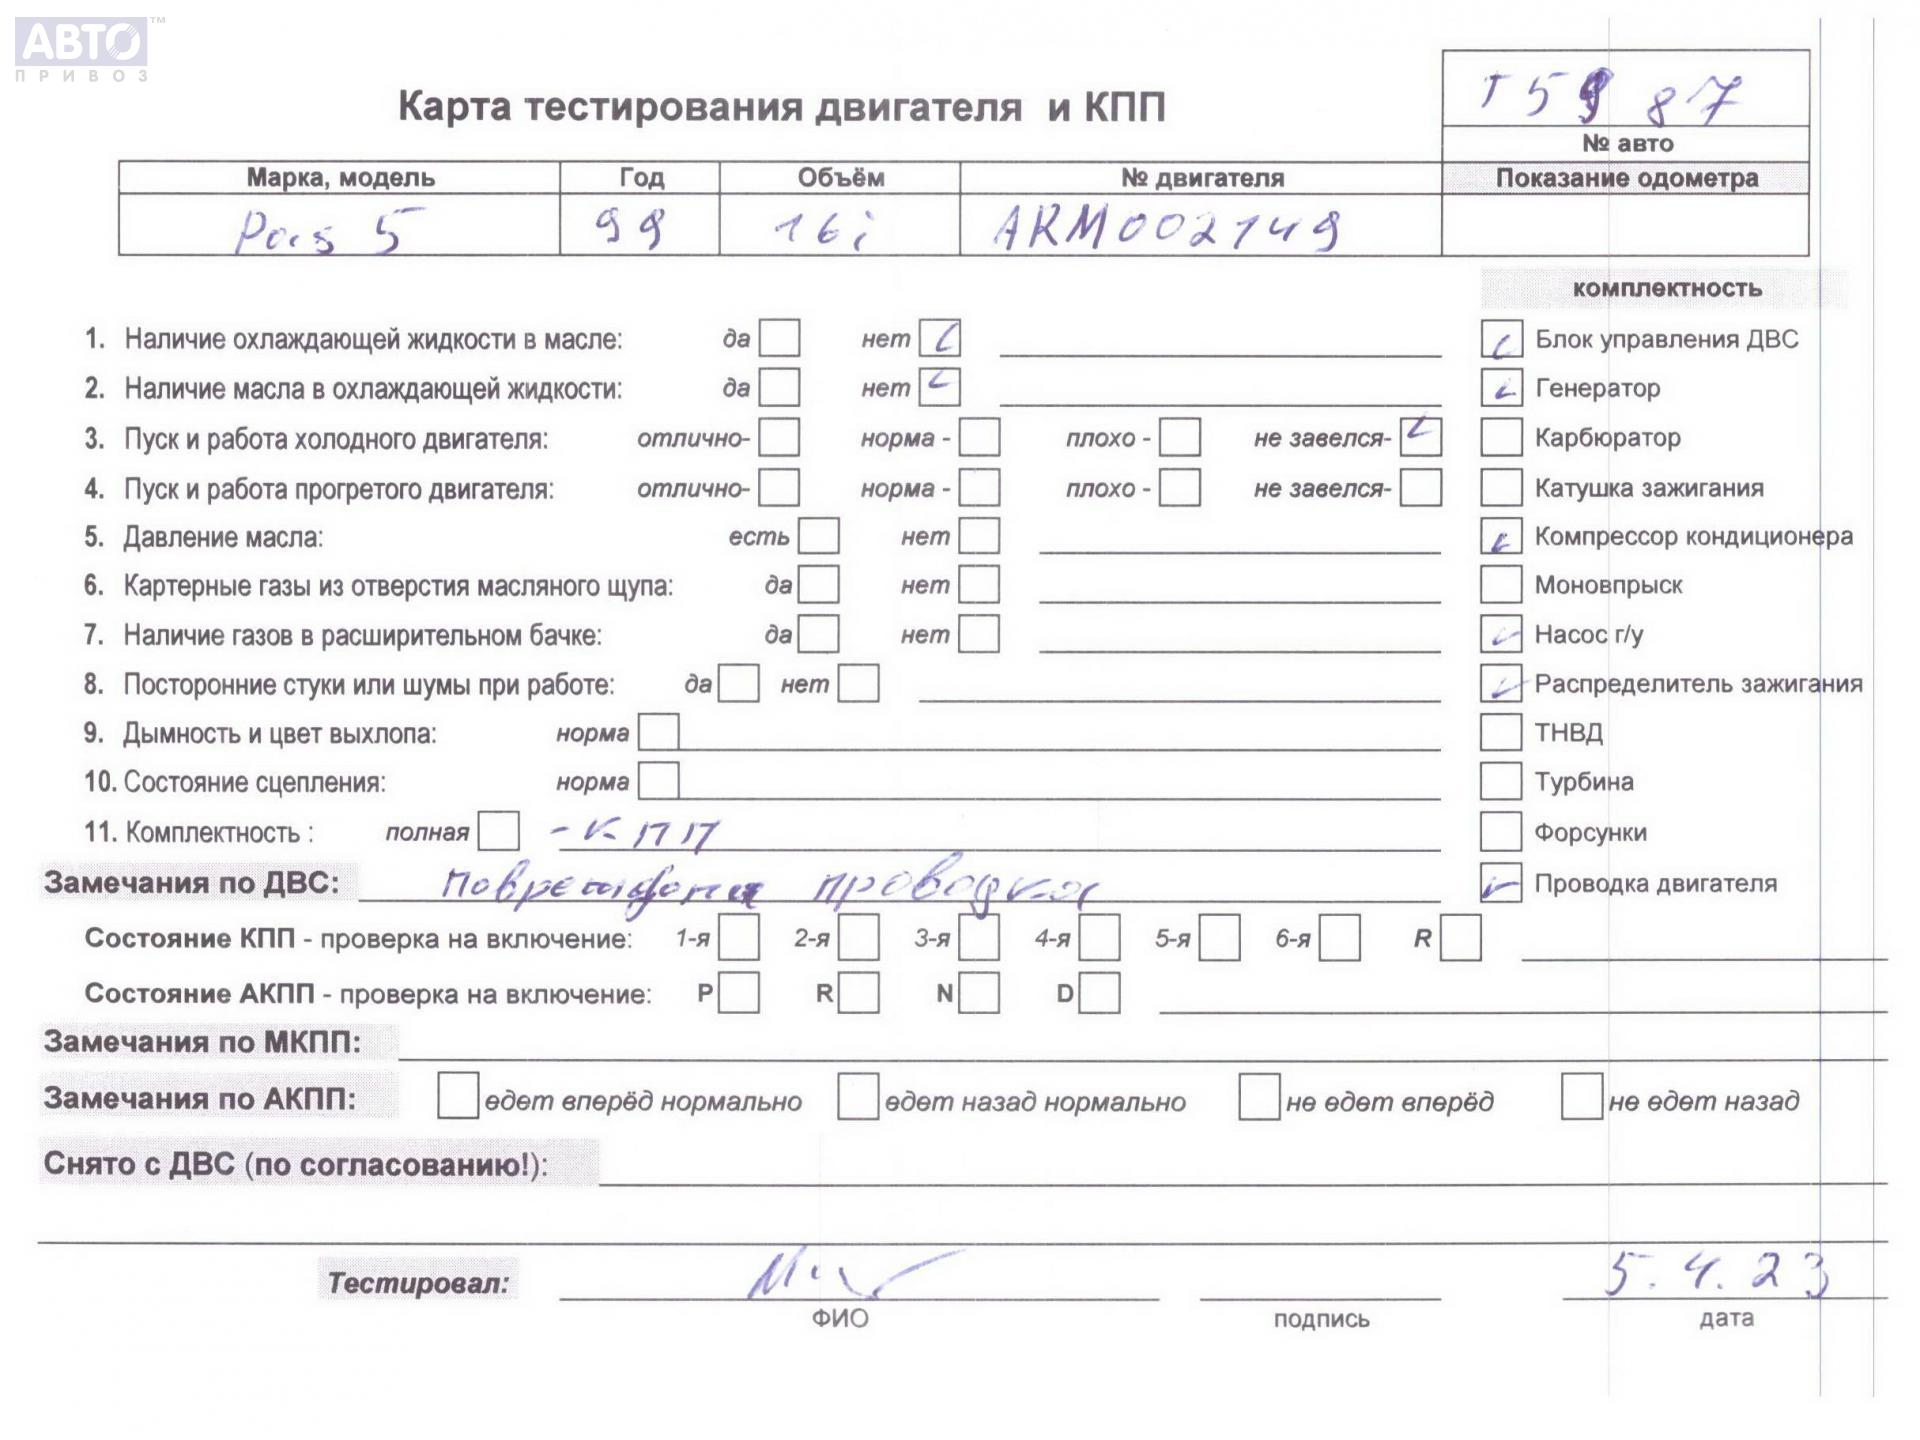 АВТО™
ПРИВОЗ
Карта тестирования двигателя и КПП
№ авто
Марка, модель Год Объём № двигателя Показание одометра
Pas 5 99 16i ARM002149
комплектность
1. Наличие охлаждающей жидкости в масле: да нет Блок управления ДВС
2. Наличие масла в охлаждающей жидкости: да нет Генератор
3. Пуск и работа холодного двигателя: отлично- норма - плохо - не завелся- Карбюратор
4. Пуск и работа прогретого двигателя: отлично- норма - плохо - не завелся- Катушка зажигания
5. Давление масла: есть нет Компрессор кондиционера
6. Картерные газы из отверстия масляного щупа: да нет Моновпрыск
7. Наличие газов в расширительном бачке: да нет Насос г/у
8. Посторонние стуки или шумы при работе: да нет Распределитель зажигания
9. Дымность и цвет выхлопа: норма ТНВД
10. Состояние сцепления: норма Турбина
11. Комплектность : полная - КПП Форсунки
Замечания по ДВС: Повреждена проводка Проводка двигателя
Состояние КПП - проверка на включение: 1-я 2-я 3-я 4-я 5-я 6-я R
Состояние АКПП - проверка на включение: P R N D
Замечания по МКПП:
Замечания по АКПП: едет вперёд нормально едет назад нормально не едет вперёд не едет назад
Снято с ДВС (по согласованию!):
Тестировал: 5.4.23
ФИО подпись дата